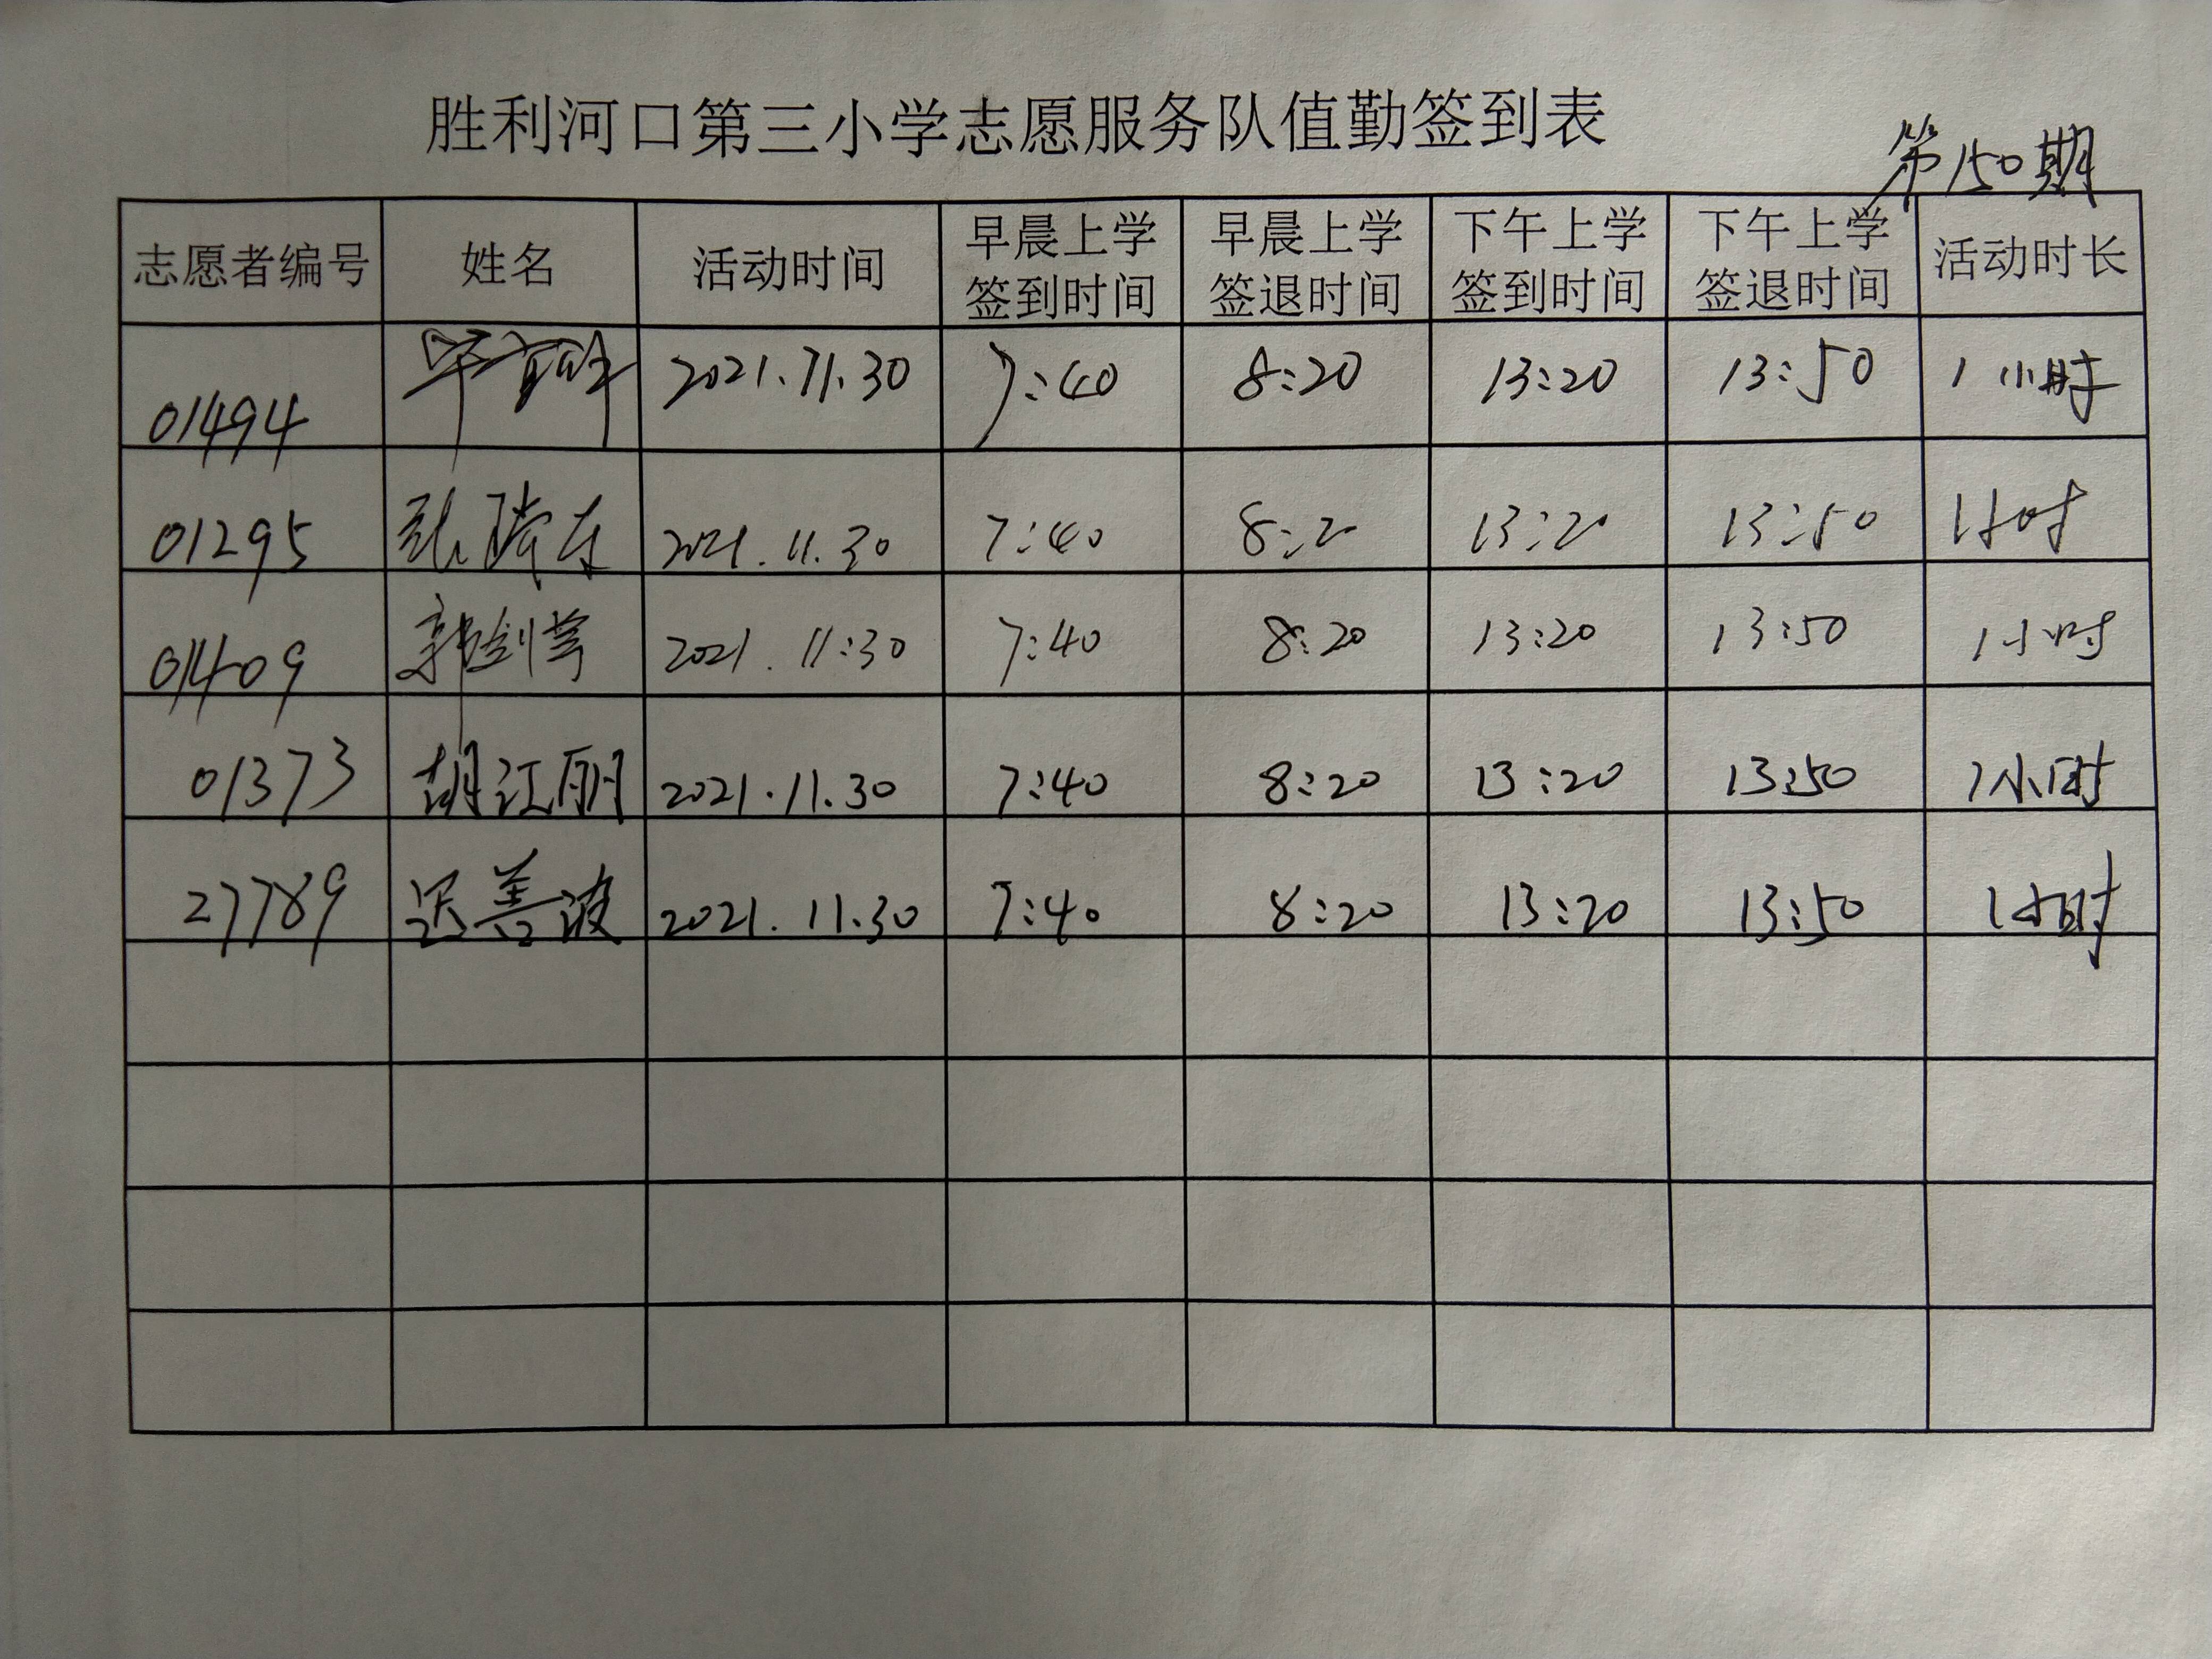 胜利河口第三小学志愿服务队值勤签到表
第150期
志愿者编号 姓名 活动时间 早晨上学签到时间 早晨上学签退时间 下午上学签到时间 下午上学签退时间 活动时长
01494 2021.11.30 7:40 8:20 13:20 13:50 1小时
01295 张 2021.11.30 7:40 8:20 13:20 13:50 1小时
01409 郭剑 2021.11:30 7:40 8:20 13:20 13:50 1小时
01373 胡江丽 2021.11.30 7:40 8:20 13:20 13:50 1小时
27789 迟善波 2021.11.30 7:40 8:20 13:20 13:50 1小时